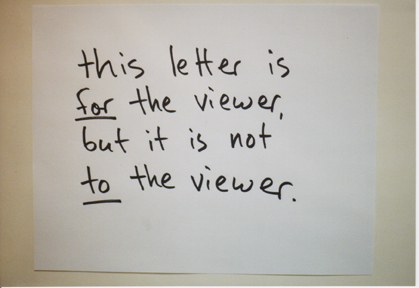 this letter is
for the viewer,
but it is not
to the viewer.